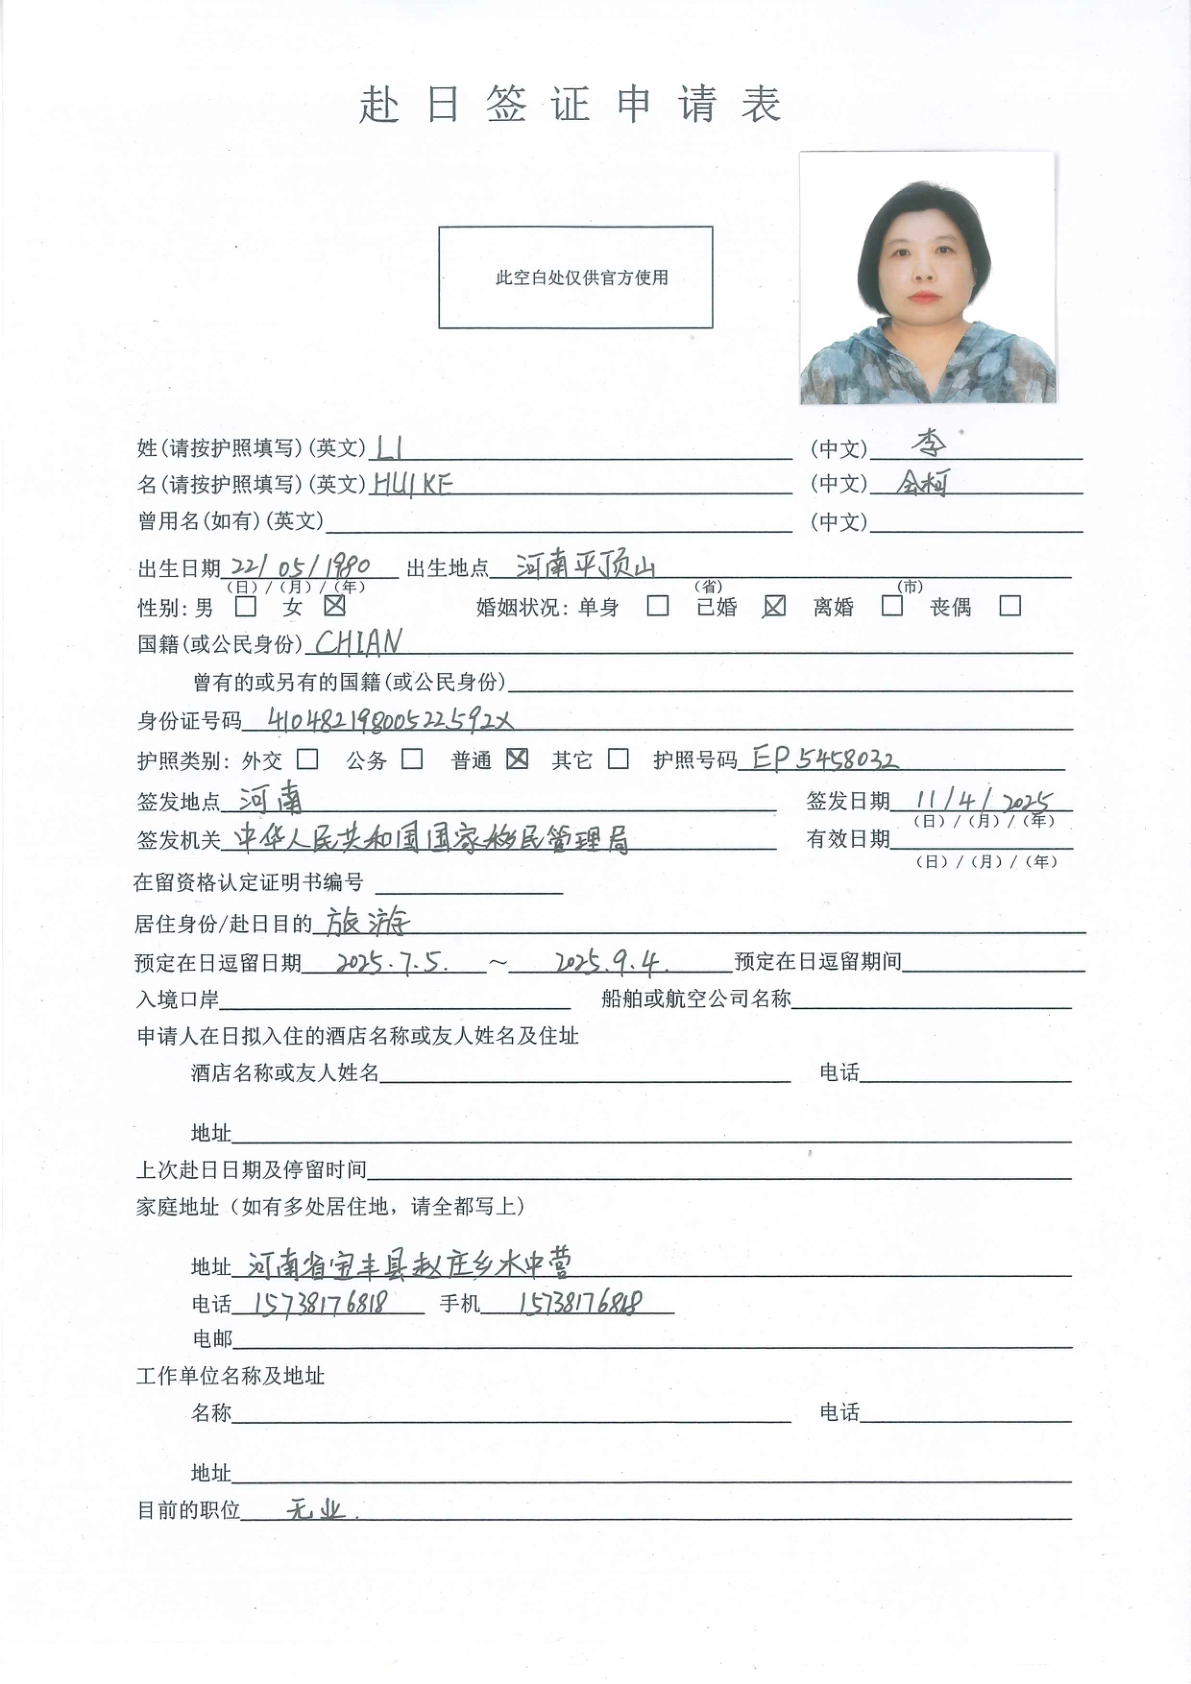 赴日签证申请表
此空白处仅供官方使用
姓(请按护照填写)(英文) LI (中文) 李
名(请按护照填写)(英文) HUIKE (中文) 会柯
曾用名(如有)(英文) (中文)
出生日期 22/05/1980 出生地点 河南平顶山
(日)/(月)/(年) (省) (市)
性别: 男 □ 女 ☒ 婚姻状况: 单身 □ 已婚 ☒ 离婚 □ 丧偶 □
国籍(或公民身份) CHIAN
曾有的或另有的国籍(或公民身份)
身份证号码 41048219800522592X
护照类别: 外交 □ 公务 □ 普通 ☒ 其它 □ 护照号码 EP5458032
签发地点 河南 签发日期 11/4/2025
(日)/(月)/(年)
签发机关 中华人民共和国国家移民管理局 有效日期
(日)/(月)/(年)
在留资格认定证明书编号
居住身份/赴日目的 旅游
预定在日逗留日期 2025.7.5. ～ 2025.9.4. 预定在日逗留期间
入境口岸 船舶或航空公司名称
申请人在日拟入住的酒店名称或友人姓名及住址
酒店名称或友人姓名 电话
地址
上次赴日日期及停留时间
家庭地址（如有多处居住地，请全都写上）
地址 河南省宝丰县赵庄乡水中营
电话 15738176818 手机 15738176818
电邮
工作单位名称及地址
名称 电话
地址
目前的职位 无业.